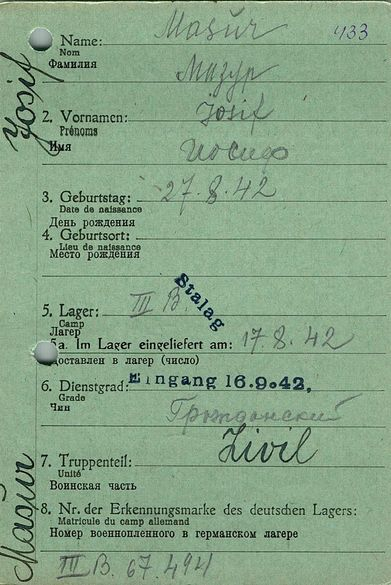 Masur
433
1. Name:
Nom
Фамилия
Мазур
2. Vornamen: Josif
Prénoms
Имя
Иосиф
3. Geburtstag: 27.8.42
Date de naissance
День рождения
4. Geburtsort:
Lieu de naissance
Место рождения
5. Lager: III B. Stalag
Camp
Лагерь
5a. Im Lager eingeliefert am: 17.8.42
Доставлен в лагерь (число)
6. Dienstgrad: Eingang 16.9.42.
Grade
Чин
Гражданский
Zivil
7. Truppenteil:
Unité
Воинская часть
8. Nr. der Erkennungsmarke des deutschen Lagers:
Matricule du camp allemand
Номер военнопленного в германском лагере
III B. 67.494
Yosif
Masur